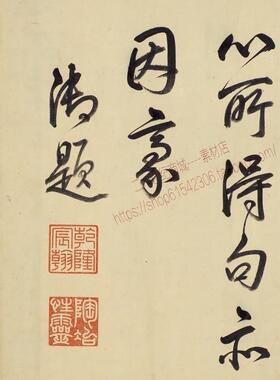 心所得句亦
因
御題
乾隆
宸翰
陶冶
性靈
商城---素材店
https://shop61542306.taobao.com